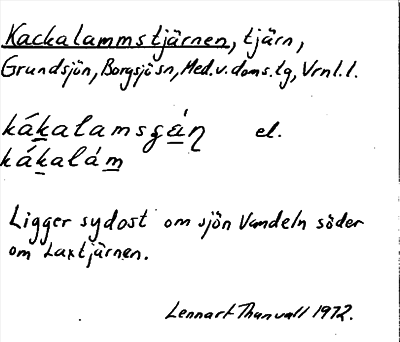 Kackalammstjärnen, tjärn,
Grundsjön, Borgsjö sn, Med.v.doms.lg, Vrnl.l.
kákalamsgáɳ el.
kákalám
Ligger sydost om sjön Vandeln söder
om Laxtjärnen.
Lennart Thanvall 1972.